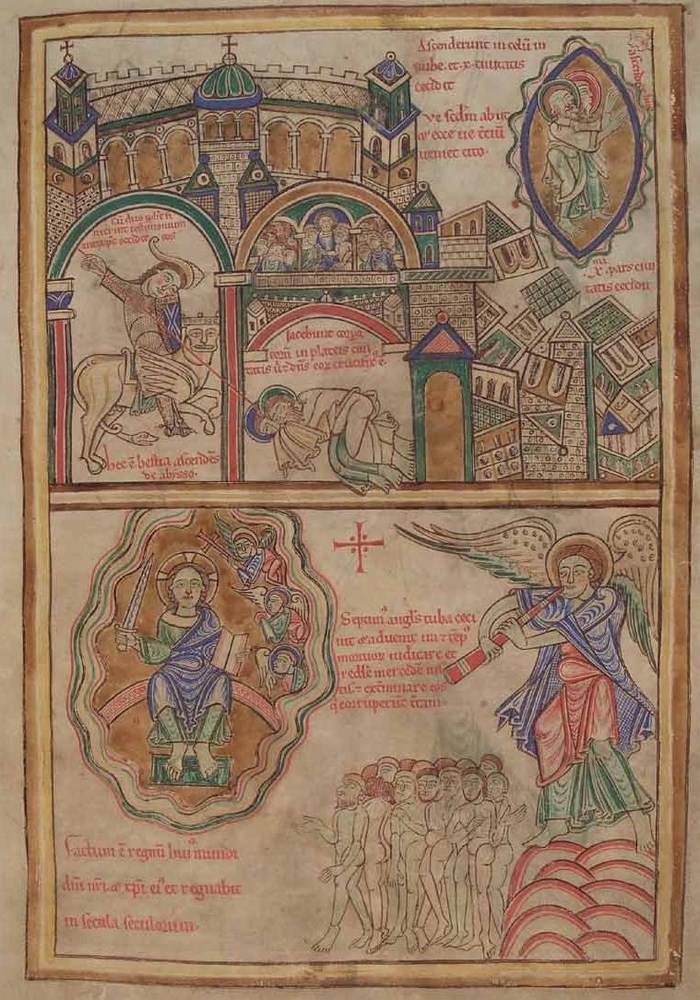 Ascenderunt in celū in
nube. et x. ciuitatis
cecidit
ve secdm abiit
ecce ue terciū
ueniet cito.
pars ciui
tatis cecidit
Cū duo
testimonium
occidet eos
Iacebunt corpa
eorū in plateis ciui
tatis
dns eorū crucifix ē.
hec ē bestia ascendēs
de abysso.
Septim angls tuba ceci
nit & aduenit
mortuor iudicare et
reddere mercedē
exterminare eos
q corruperūt terram.
factum ē regnū huī mundi
dni nri & xpi ei et regnabit
in secula seculorum.